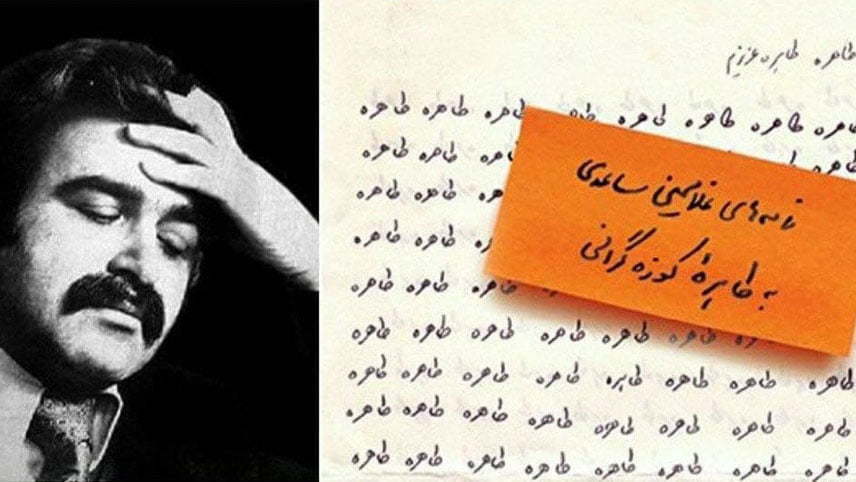 طاهره طاهره عزیزم
طاهره طاهره طاهره طاهره طاهره طاهره طاهره طاهره
طاهره طاهره طاهره طاهره
طاهره طاهره طاهره
طاهره طاهره طاهره
طاهره طاهره طاهره
طاهره طاهره طاهره طاهره طاهره طاهره
طاهره طاهره طاهره طاهره طاهره طاهره طاهره طاهره
طاهره طاهره طاهره طاهره طاهره طاهره طاهره طاهره
طاهره طاهره طاهره طاهره طاهره طاهره طاهره طاهره
نامه‌های غلامحسین ساعدی
به طاهرهٔ کوزه گرانی